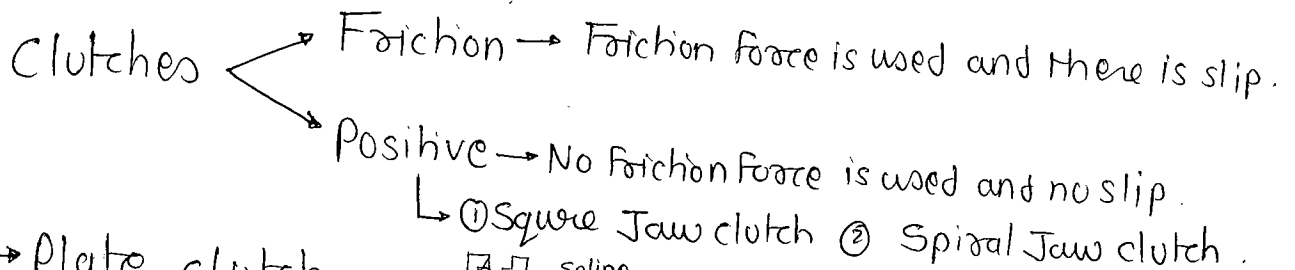 Clutches → Friction → Friction force is used and there is slip.
→ Positive → No friction force is used and no slip.
↳ ① Squre Jaw clutch ② Spiral Jaw clutch.
→ Plate clutch